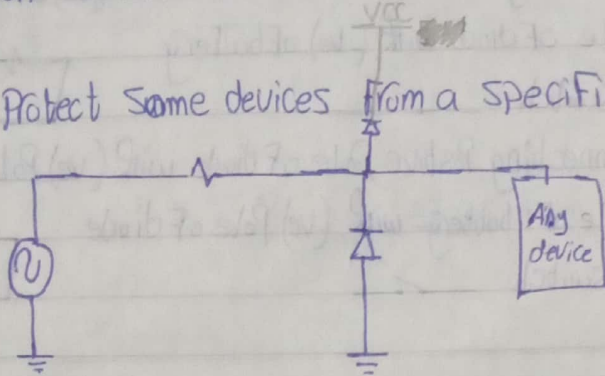 VCC
Protect some devices from a specifi
Any
device